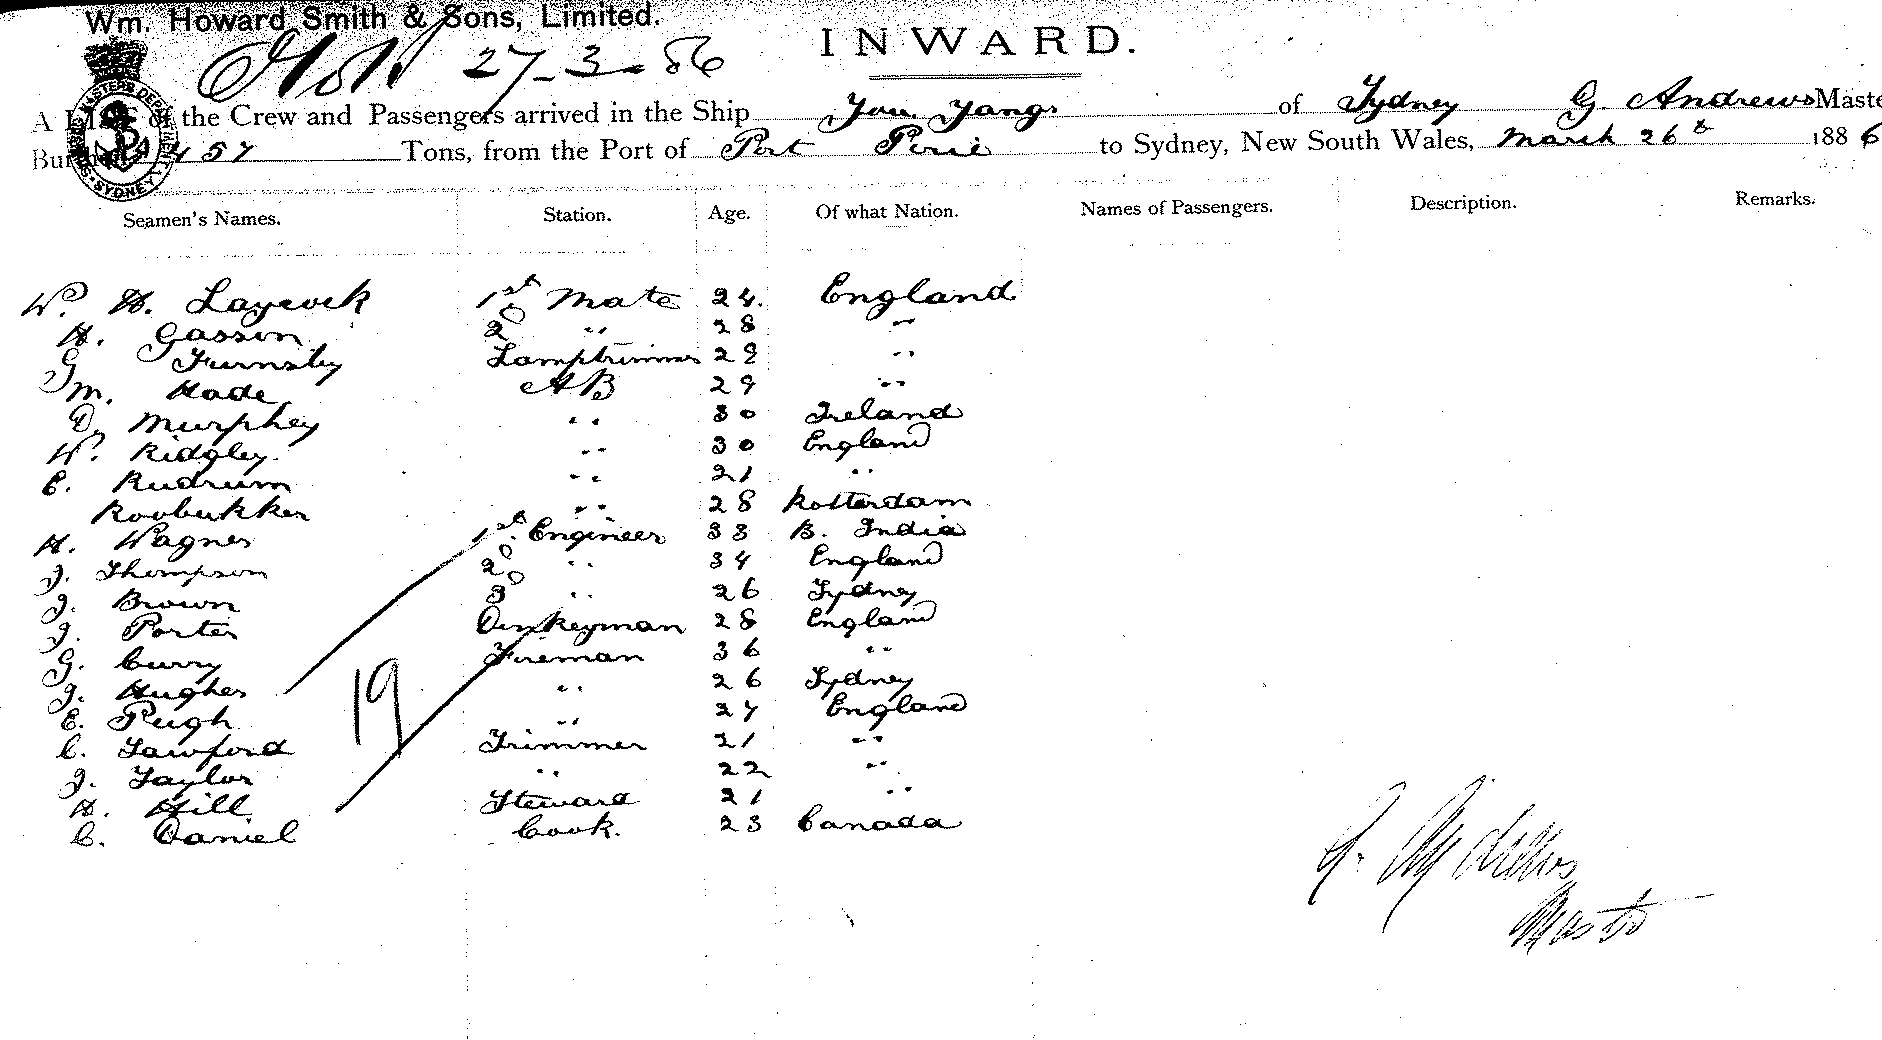 Wm. Howard Smith & Sons, Limited.
27-3-86
INWARD.
A List of the Crew and Passengers arrived in the Ship You Yangs of Sydney G. Andrews Maste
457 Tons, from the Port of Port Pirie to Sydney, New South Wales, March 26th 1886
Seamen's Names. Station. Age. Of what Nation. Names of Passengers. Description. Remarks.
W. H. Laycock 1st Mate 24. England
H. Gasson 2D " 28 "
G. Furnsby Lamptrimmer 29 "
M. Hade AB 29 "
D. Murphey " 30 Ireland
W. Ridgley. " 30 England
E. Rudrum " 21 "
Roobukker " 28 Rotterdam
H. Wagner 1st Engineer 33 B. India
J. Thompson 2D " 34 England
J. Brown 3D " 26 Sydney
J. Porter Donkeyman 28 England
G. Curry Fireman 36 "
J. Hughes " 26 Sydney
E. Pugh " 27 England
C. Lawford Trimmer 21 "
J. Taylor " 22 "
H. Hill Steward 21 "
C. Daniel Cook. 23 Canada
19
G. Andrews
Master